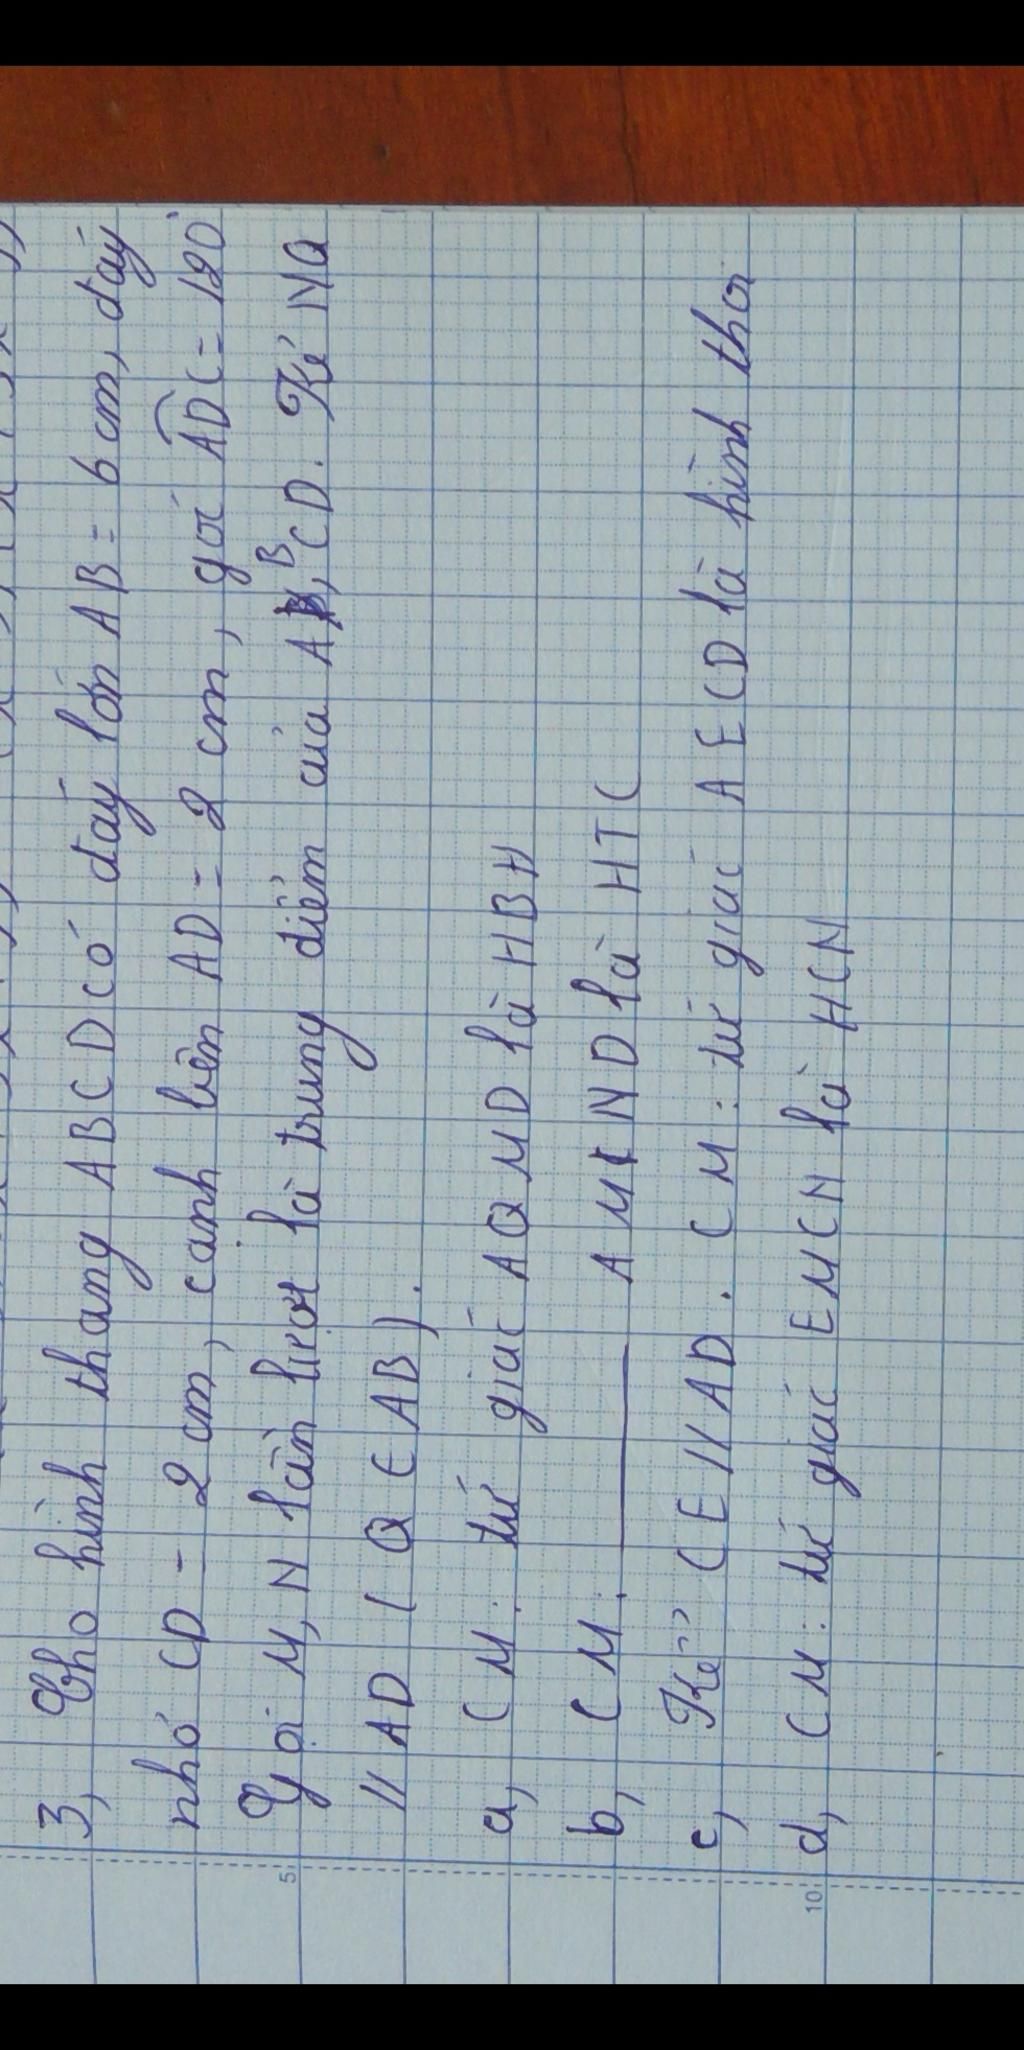 3, Cho hình thang ABCD có đáy lớn AB = 6 cm, đáy
nhỏ CD = 2 cm, cạnh bên AD = 2 cm, góc ADC = 120°
Gọi M, N lần lượt là trung điểm của AB, CD. Kẻ MQ
// AD ( Q ∈ AB ).
a, CM: tứ giác AQMD là HBH
b, CM: ——— AMND là HTC
c, Kẻ CE // AD. CM: tứ giác AECD là hình thoi
d, CM: tứ giác EMCN là HCN
5
10